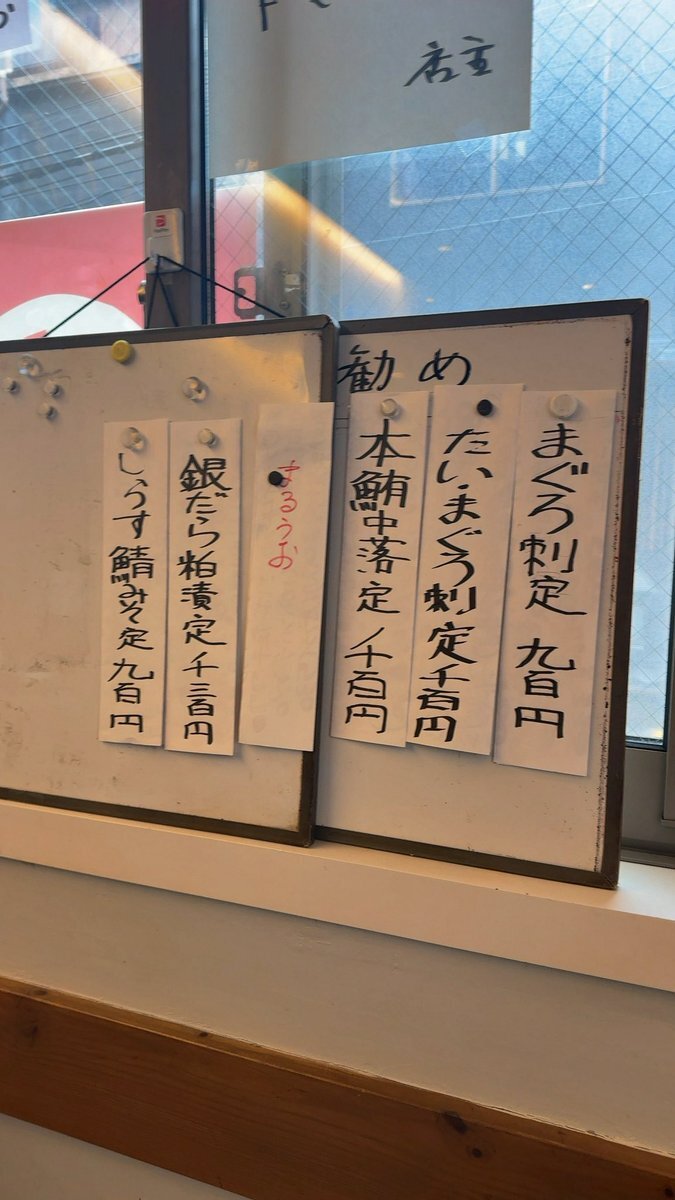 店主
勧め
まぐろ刺定 九百円
たい・まぐろ刺定 千百円
本鮪中落定 千百円
まるうお
銀だら粕漬定 千三百円
しらす 鯖みそ定 九百円